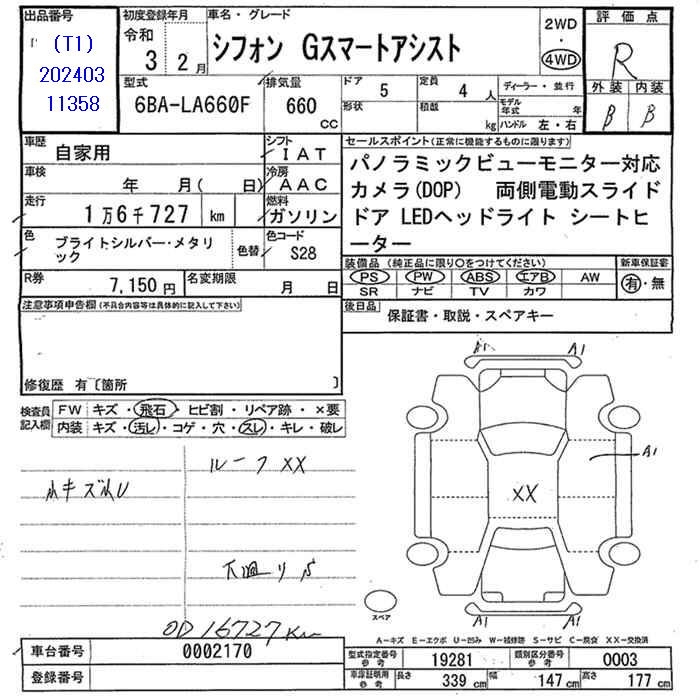 出品番号
(T1)
202403
11358
初度登録年月
令和
3 2月
車名・グレード
シフォン Gスマートアシスト
2WD
・
4WD
評価点
R
外装 内装
B B
型式
6BA-LA660F
排気量
660
CC
ドア
5
形状
定員
4 人
積載
kg
ディーラー・並行
モデル年式 年
ハンドル 左・右
車歴
自家用
シフト
IAT
車検
年 月( 日)
冷房
AAC
走行
1万6千727 km
燃料
ガソリン
色
ブライトシルバー・メタリ
ック
色替
色コード
S28
R券
7,150円
名変期限
月 日
セールスポイント(正常に機能するものに限ります)
パノラミックビューモニター対応
カメラ(DOP) 両側電動スライド
ドア LEDヘッドライト シートヒ
ーター
装備品(純正品に限り○をつけてください)
新車保証書
PS PW ABS エアB AW
SR ナビ TV カワ
有・無
後日品
保証書・取説・スペアキー
注意事項申告欄(不具合内容等は具体的に記入して下さい)
修復歴 有〔箇所 〕
検査員
記入欄
FW キズ・飛石・ヒビ割・リペア跡・×要
内装 キズ・汚し・コゲ・穴・スレ・キレ・破レ
ルーフXX
小キズ小U
下廻りS
OD 16727Km
A1 A1
A1
XX
A1 A1
スペア
A-キズ E-エクボ U-凹み W-補修跡 S-サビ C-腐食 XX-交換済
車台番号
0002170
登録番号
型式指定番号
参考
19281
類別区分番号
参考
0003
車庫証明用
参考
長さ 339 cm 幅 147 cm 高さ 177 cm